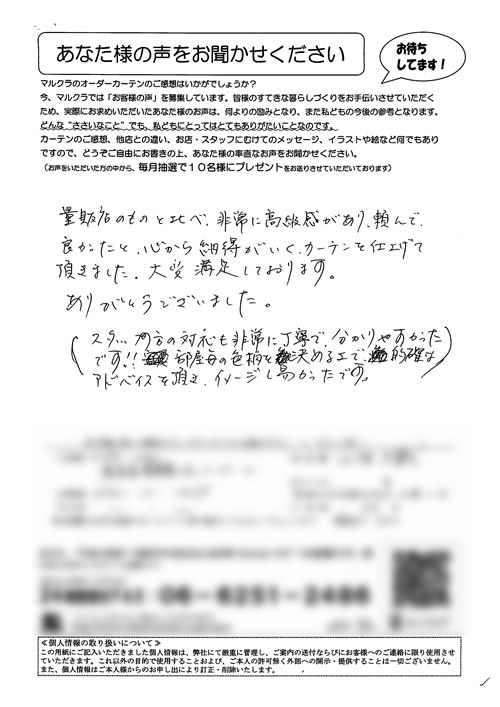 あなた様の声をお聞かせください
お待ち
してます！
マルクラのオーダーカーテンのご感想はいかがでしょうか？
今、マルクラでは「お客様の声」を募集しています。皆様のすてきな暮らしづくりをお手伝いさせていただく
ため、実際にお求めいただいたあなた様のお声は、何よりの励みとなり、また私どもの今後の参考となります。
どんな“ささいなこと”でも、私どもにとってはとてもありがたいことなのです。
カーテンのご感想、他店との違い、お店・スタッフにむけてのメッセージ、イラストや絵など何でもあり
ですので、どうぞご自由にお書きの上、あなた様の率直なお声をお聞かせください。
（お声をいただいた方の中から、毎月抽選で１０名様にプレゼントをお送りさせていただいております）
量販店のものと比べ、非常に高級感があり、頼んで、
良かったと、心から納得がいく、カーテンを仕上げて
頂きました。大変満足しております。
ありがとうございました。
(スタ…の方の対応も非常に丁寧で、分かりやすかった
です!! 部屋毎の色柄を決める上で、的確な
アドバイスを頂き、イメージし易かったです。)
06-6251-2486
≪個人情報の取り扱いについて≫
この用紙にご記入いただきました個人情報は、弊社にて厳重に管理し、ご案内の送付ならびにお客様へのご連絡に限り使用させ
ていただきます。これ以外の目的で使用することおよび、ご本人の許可無く外部への開示・提供することは一切ございません。
また、個人情報はご本人様からのお申し出により訂正・削除いたします。